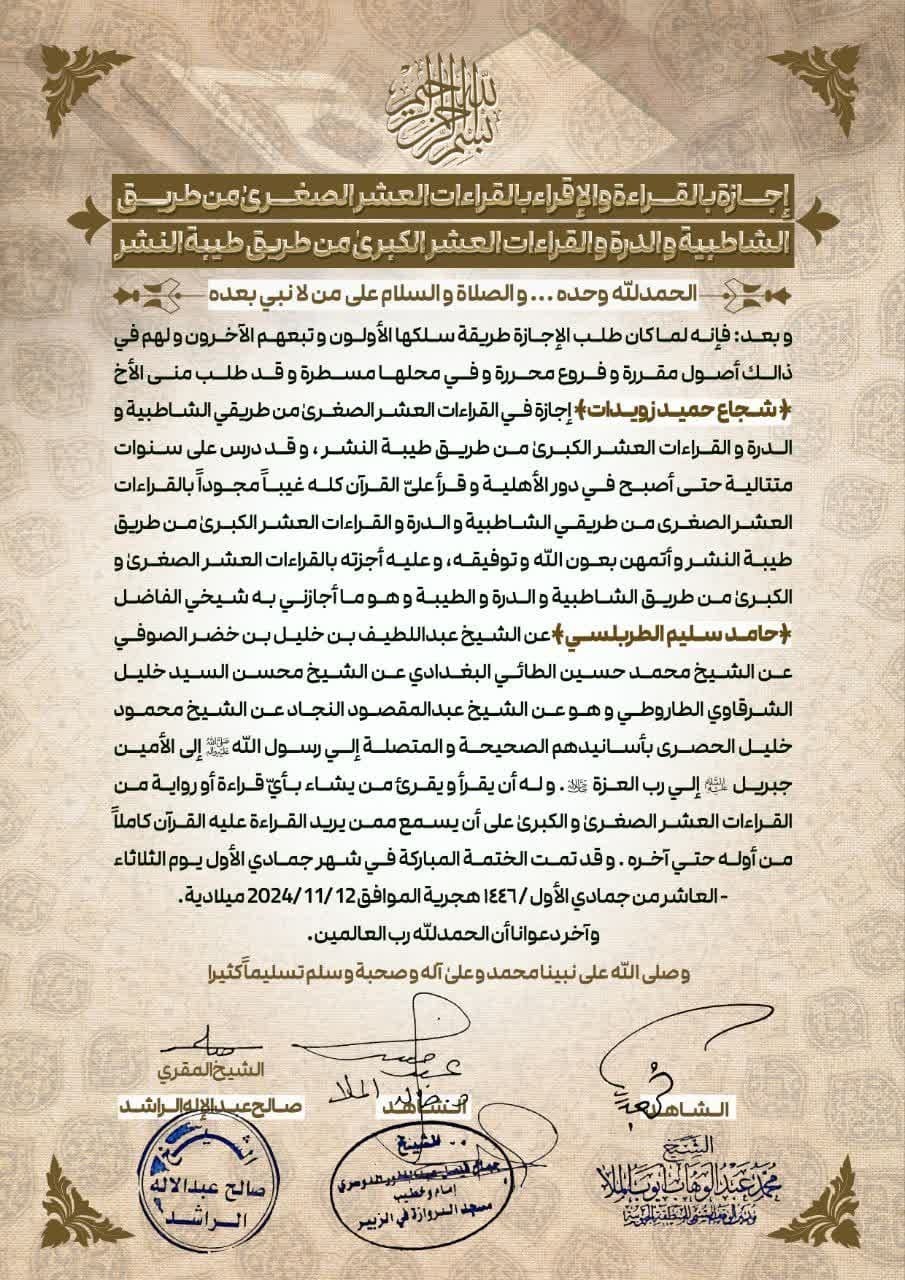 بسم الله الرحمن الرحيم
إجازة بالقراءة والإقراء بالقراءات العشر الصغرىٰ من طريق
الشاطبية والدرة والقراءات العشر الكبرىٰ من طريق طيبة النشر
الحمدلله وحده ... والصلاة والسلام على من لا نبي بعده
و بعد: فإنه لما كان طلب الإجازة طريقة سلكها الأولون و تبعهم الآخرون و لهم في
ذالك أصول مقررة و فروع محررة و في محلها مسطرة و قد طلب منى الأخ
﴿شجاع حميد زويدات﴾ إجازة في القراءات العشر الصغرىٰ من طريقي الشاطبية و
الدرة و القراءات العشر الكبرىٰ من طريق طيبة النشر ، و قد درس على سنوات
متتالية حتى أصبح في دور الأهلية و قرأ عليّ القرآن كله غيباً مجوداً بالقراءات
العشر الصغرى من طريقي الشاطبية و الدرة و القراءات العشر الكبرىٰ من طريق
طيبة النشر و أتمهن بعون الله و توفيقه، و عليه أجزته بالقراءات العشر الصغرىٰ و
الكبرىٰ من طريق الشاطبية و الدرة و الطيبة و هو ما أجازني به شيخي الفاضل
﴿حامد سليم الطربلسي﴾ عن الشيخ عبداللطيف بن خليل بن خضر الصوفي
عن الشيخ محمد حسين الطائي البغدادي عن الشيخ محسن السيد خليل
الشرقاوي الطاروطي و هو عن الشيخ عبدالمقصود النجاد عن الشيخ محمود
خليل الحصرى بأسانيدهم الصحيحة و المتصلة إلي رسول الله ﷺ إلى الأمين
جبريل عليه السلام إلي رب العزة ﷻ . و له أن يقرأ و يقرئ من يشاء بأيّ قراءة أو رواية من
القراءات العشر الصغرىٰ و الكبرىٰ على أن يسمع ممن يريد القراءة عليه القرآن كاملاً
من أوله حتي آخره . و قد تمت الختمة المباركة في شهر جمادي الأول يوم الثلاثاء
- العاشر من جمادي الأول / ١٤٤٦ هجرية الموافق 12/ 11/ 2024 ميلادية.
و آخر دعوانا أن الحمدلله رب العالمين.
وصلى الله على نبينا محمد و علىٰ آله وصحبة وسلم تسليماً كثيرا
الشيخ المقري
صالح عبد الإله الراشد
الشاهد
الشاهد
الشيخ
صالح عبدالاله
الراشد
الشيخ
إمام وخطيب
في الزبير
الشيخ
محمد عبد الوهاب الملا